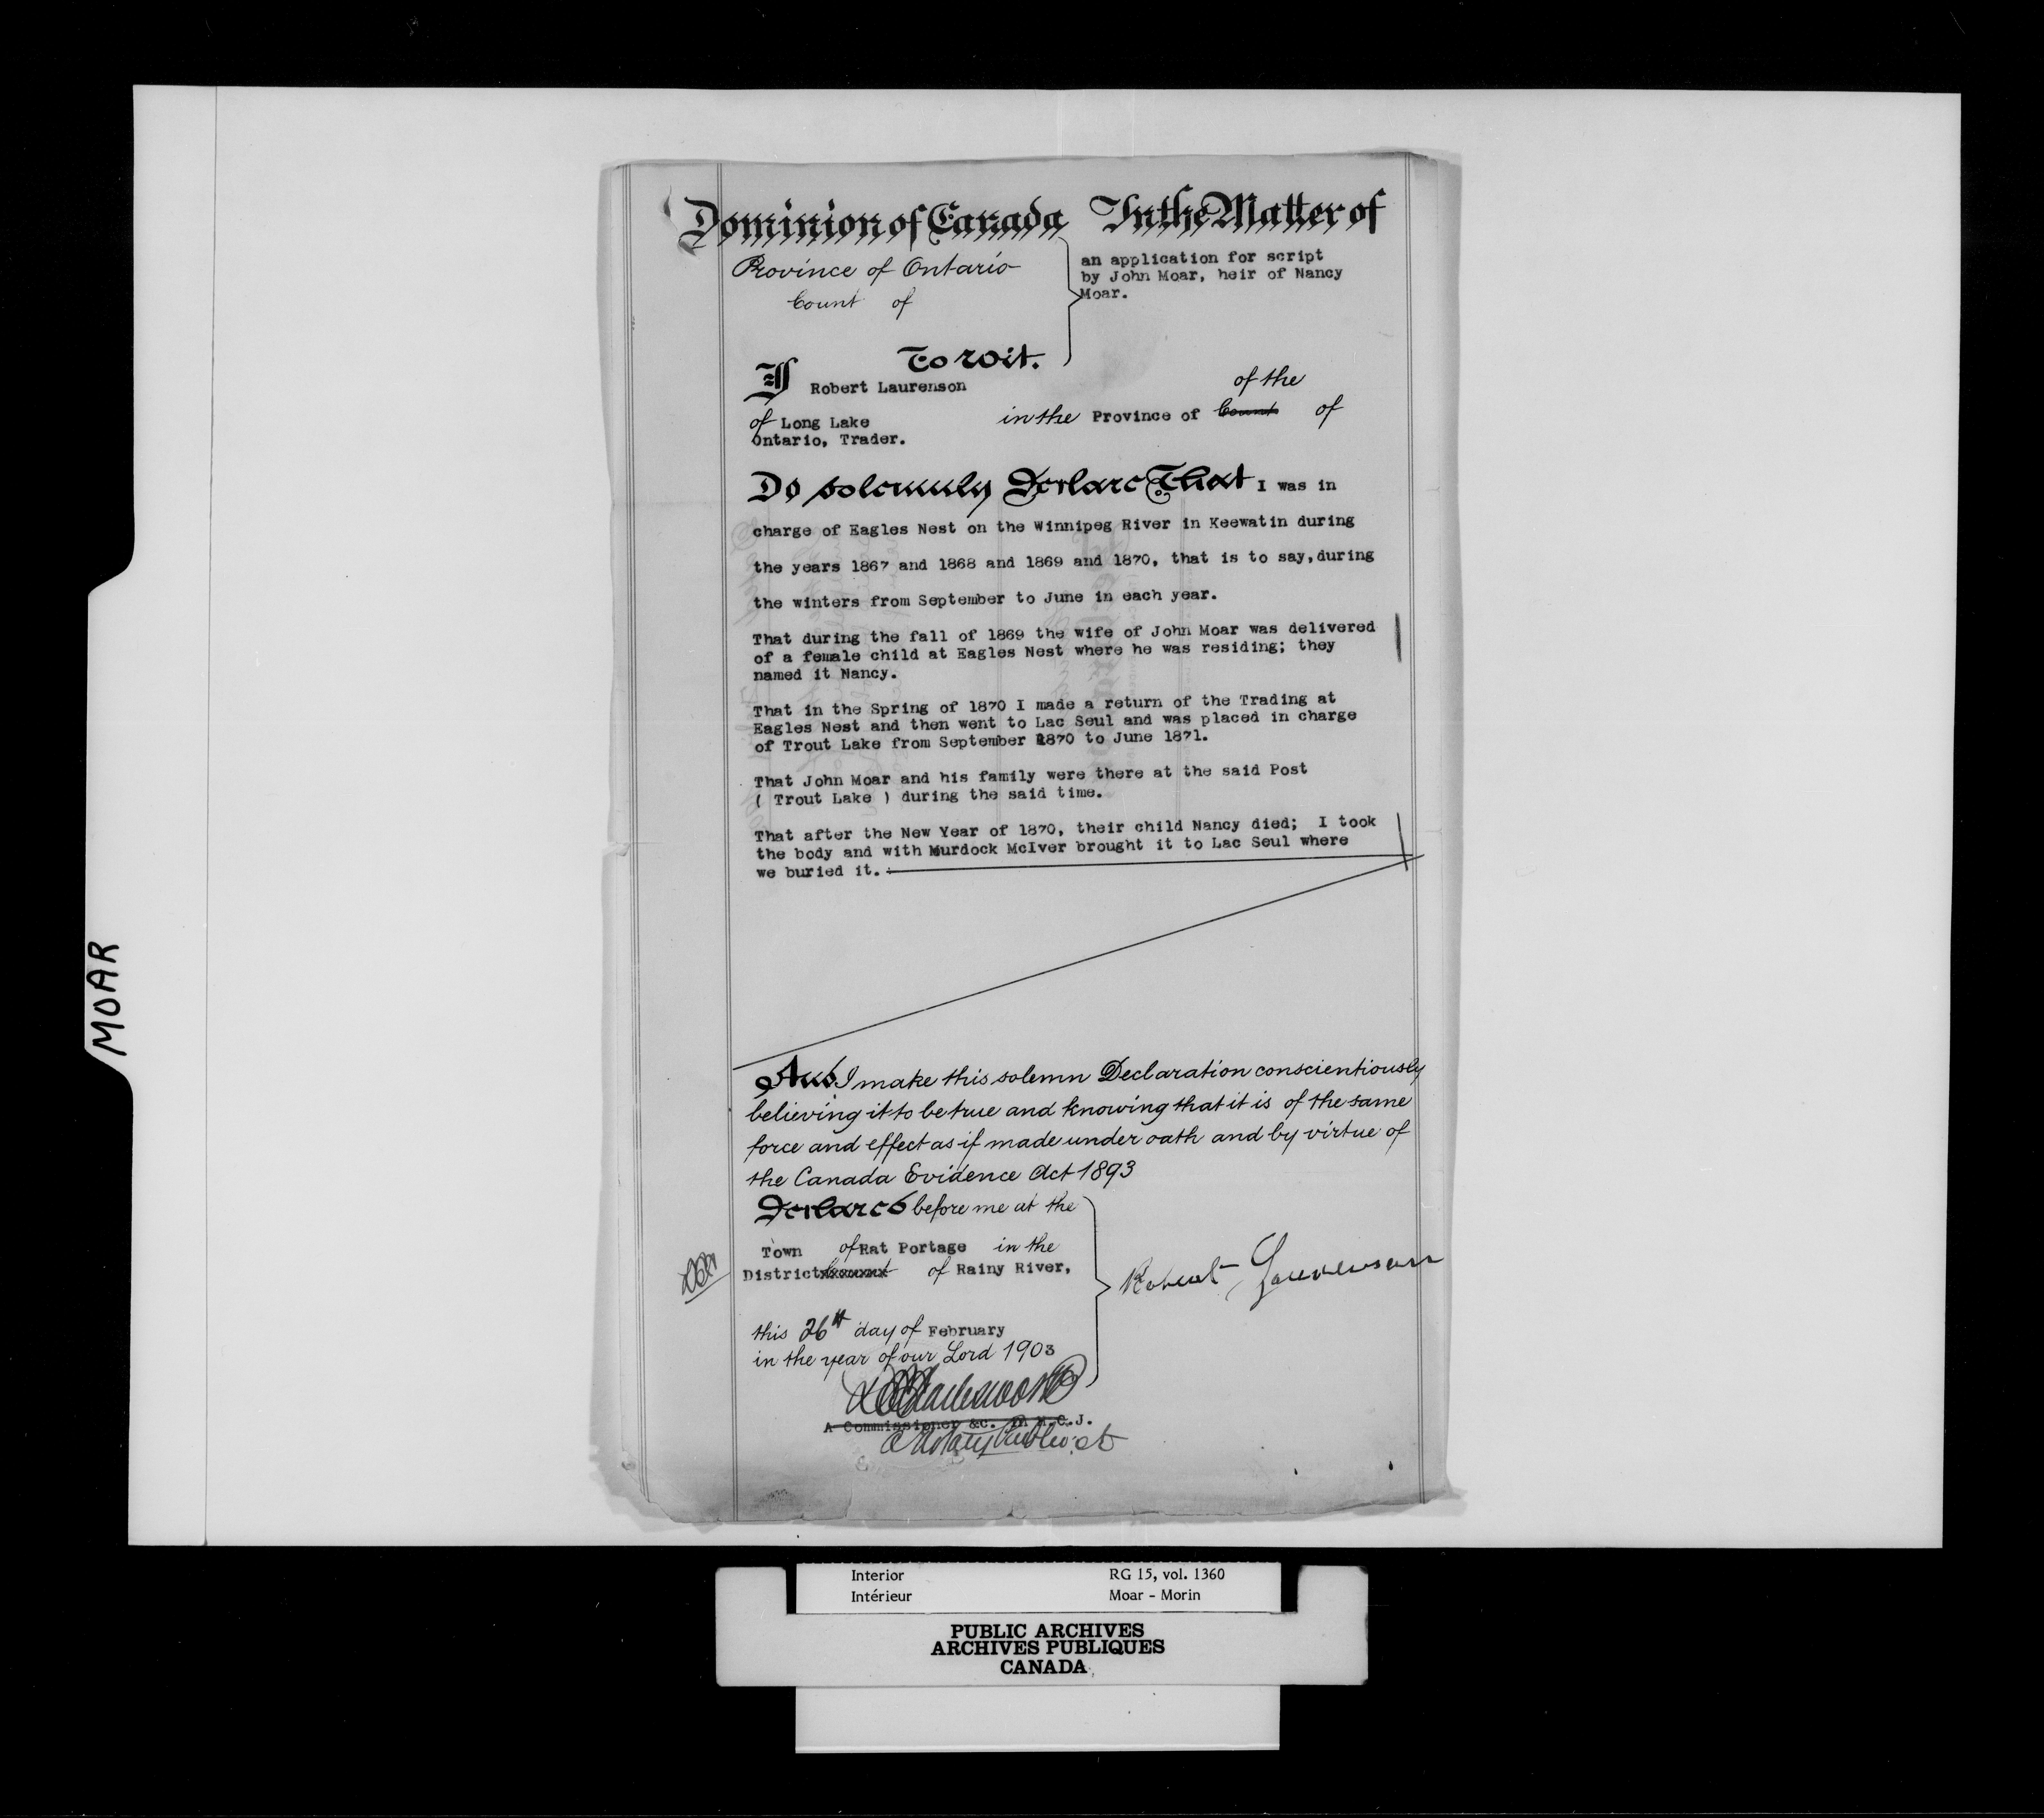 Dominion of Canada In the Matter of
Province of Ontario
Count of
an application for script
by John Moar, heir of Nancy
Moar.
To Wit.
I Robert Laurenson of the
of Long Lake in the Province of Count of
Ontario, Trader.
Do solemnly Declare That I was in
charge of Eagles Nest on the Winnipeg River in Keewatin during
the years 1867 and 1868 and 1869 and 1870, that is to say, during
the winters from September to June in each year.
That during the fall of 1869 the wife of John Moar was delivered
of a female child at Eagles Nest where he was residing; they
named it Nancy.
That in the Spring of 1870 I made a return of the Trading at
Eagles Nest and then went to Lac Seul and was placed in charge
of Trout Lake from September 1870 to June 1871.
That John Moar and his family were there at the said Post
( Trout Lake ) during the said time.
That after the New Year of 1870, their child Nancy died; I took
the body and with Murdock McIver brought it to Lac Seul where
we buried it.
And I make this solemn Declaration conscientiously
believing it to be true and knowing that it is of the same
force and effect as if made under oath and by virtue of
the Canada Evidence Act 1893
Declared before me at the
Town of Rat Portage in the
District of Rainy River,
Robert Laurenson
this 26th day of February
in the year of our Lord 1903
A Commissioner &c. in H.C.J.
A Notary Public
MOAR
Interior RG 15, vol. 1360
Intérieur Moar - Morin
PUBLIC ARCHIVES
ARCHIVES PUBLIQUES
CANADA